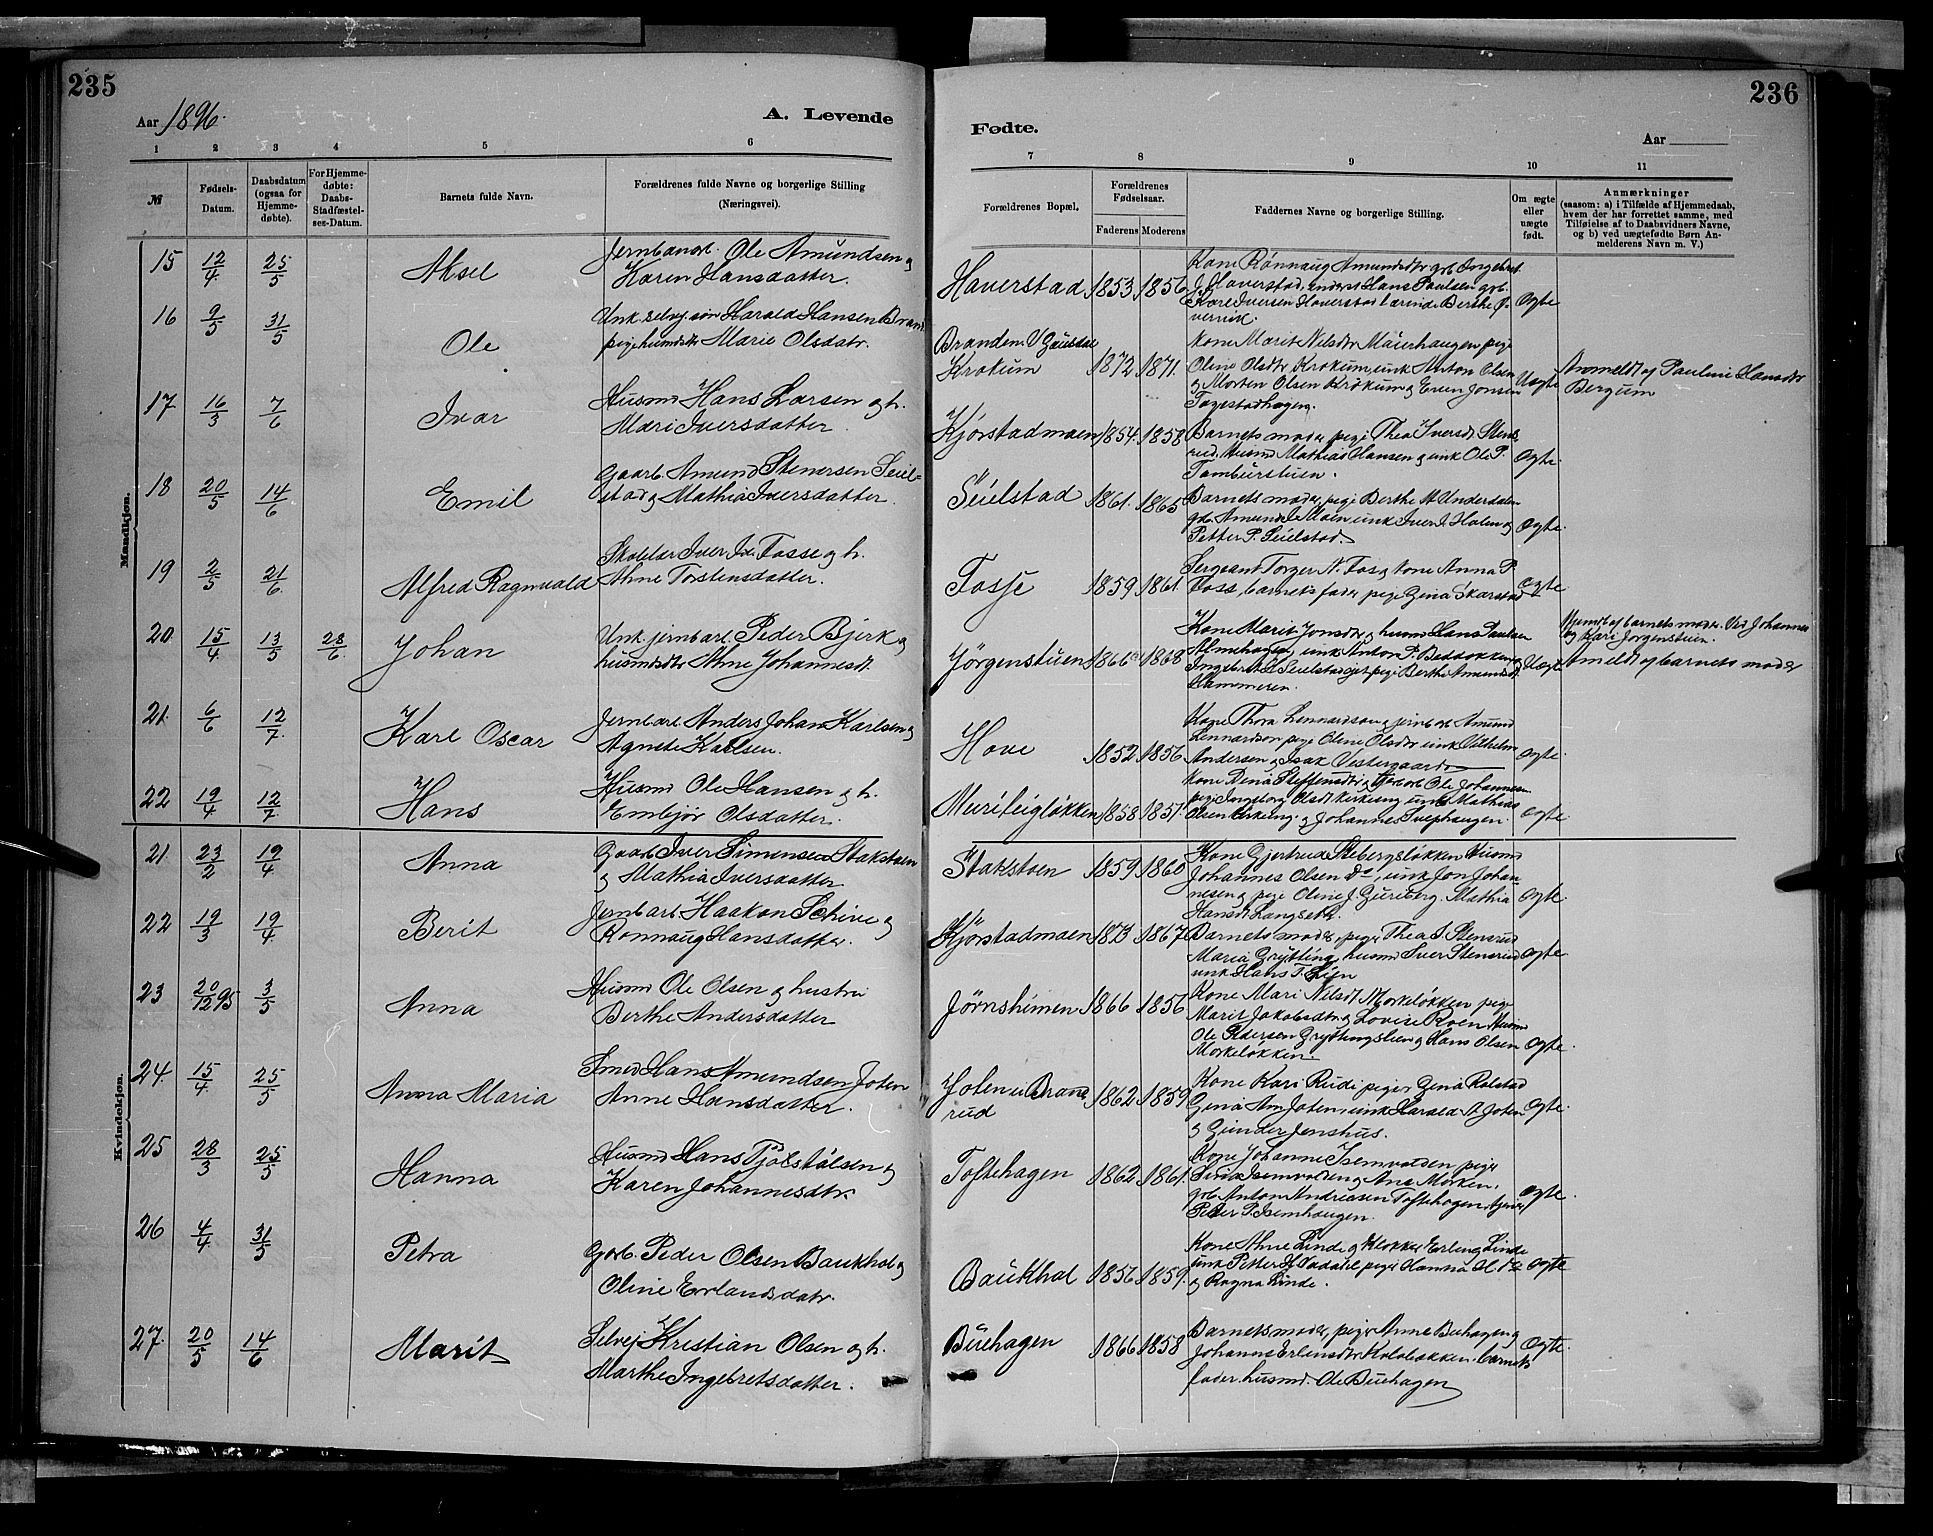 235
Aar 1896.
A. Levende
1 2 3 4 5 6
№
Fødsels-
Datum.
Daabsdatum
(ogsaa for
Hjemme-
døbte).
For Hjemme-
døbte:
Daabs-
Stadfæstel-
ses-Datum.
Barnets fulde Navn.
Forældrenes fulde Navne og borgerlige Stilling
(Næringsvei).
Mandkjøn.
15 12/4 25/5 Aksel
Jernbanarb. Ole Amundsen og
Karen Hansdatter.
16 9/5 31/5 Ole
Unk. selvej. søn Harald Hansen
pige Marie Olsdatr.
17. 16/3 7/6 Ivar
Husmd Hans Larsen og h.
Mari Iversdatter.
18 20/5 14/6 Emil
Gaarb. Amund Stenersen Seiel-
stad og Mathia Iversdatter.
19 2/5 21/6 Alfred Ragnvald
Iver Fosse og h.
Ahne Torstensdatter.
20. 15/4. 13/5 28/6. Johan
Unk. jernbarb. Peder Bjerk og
Ahne Johannesdt.
21. 6/6 12/7. Karl Oscar
Jernbarb. Anders Johan Karlsen og
Agnete Karlsen.
22 19/4 12/7. Hans
Husmd Ole Hansen og h.
Embjør Olsdatter.
Kvindekjøn.
21. 23/2 19/4 Anna
Gaarb. Iver Simensen Stakstoen
og Mathia Iversdatter
22 19/3 19/4. Berit
Jernbarb. Haakon Schive og
Rønnaug Hansdatter.
23 20/12 95 3/5 Anna
Husmd Ole Olsen og hustru
Berthe Andersdatter
24. 15/4. 25/5 Anna Maria
Smed Hans Amundsen Joten
Anne Hansdatter.
25 28/3 25/5 Hanna
Husmd Hans Tjøstolsen og
Karen Johannesdtr.
26 4/4 31/5 Petra
Gbr. Peder Olsen Baukhol og
Oline Erlandsdatr.
27. 20/5 14/6 Marit
Selvej Kristian Olsen og h.
Marthe Ingebretsdatter.
236
Fødte.
Aar
7 8 9 10 11
Forældrenes Bopæl.
Forældrenes
Fødselsaar.
Faderens Moderens
Faddernes Navne og borgerlige Stilling.
Om ægte
eller
uægte
født.
Anmærkninger
(saasom: a) i Tilfælde af Hjemmedaab,
hvem der har forrettet samme, med
Tilføielse af to Daabsvidners Navne,
og b) ved uægtefødte Børn An-
melderens Navn m. V.)
Haverstad 1853 1856
Kone Rønnaug Amundsdtr
Haverstad, Hans Paulsen
Iversen Haverstad Berthe
Ægte
Branden V Gausdal
Krokum 1872 1871.
Kone Marit Nilsdtr pige
Oline Olsdtr Krokum, unk Anton Olsen
og Morten Olsen Krokum og Even Jonsen
Uægte
Anmeldt af Pauline Hansdtr
Bergum
Kjørstadmoen 1854. 1858
Barnets moder, pige Thea Iversdt. Stens-
rud, Husmd Mathias Hansen og unk Ole P.
Tamburstuen.
Ægte.
Seielstad 1861. 1865
Barnets moder, pige Berthe
Amund Moen unk Iver J. Holen og
Petter P. Seielstad.
Ægte.
Fosse 1859 1861.
Sergeant Torger N. Fos og kone Anna P.
Foss, barnets fader pige Gina Skarstad
Ægte
Jørgenstuen 1866 1868
Kone Marit Jonsdtr og husmd Hans Paulsen
unk Anton P.
Seielstad pige Berthe Amundsdt.
Hammeren.
Uægte
Hjemdt af barnets moder. Ved Johannes
og Kari Jørgenstuen.
Anmeldt af barnets moder
Hove 1852 1856
Kone Thora Lennardson og jernbarb Amund
Lennardson pige Oline Olsdtr unk Vilhelm
Andersen og Isak Vestergaard
Ægte.
1858 1857.
Kone Dina Steffensdtr og Ole Johannesen
pige Ingeborg Olsdt Kirkeng unk Mathias
Olsen Kirkeng og Johannes
Ægte.
Stakstoen 1859 1860
Kone Gjertrud Stebergsløkken Husmd
Johannes Olsen Do, unk Jon Johan-
nesen og pige Oline J. Mathia
Hansdt Langseth.
Ægte.
Kjørstadmoen 1873 1867
Barnets moder, piger Thea I. Stensrud
Maria Grytting, husmd Iver Stensrud
unk Hans T. Lien
Ægte.
Jørnsheimen 1866 1856
Kone Mari Nilsdt. Morkeløkken pige
Marit Jakobsdtr og Lovise Roen Husmd
Ole Pedersen Gryttingslien og Hans Olsen
Morkeløkken.
Ægte.
Joten u Brand-
rud 1862 1859
Kone Kari Rudi piger Gina Rolstad
Gina Am. Joten unk Harald A. Joten
og Gunder Jenshus.
Ægte.
Toftehagen 1862 1861.
Kone Johanne Isumvolden piger
Isumvolden og Ane Morken,
gbr. Anton Andreasen Toftehagen
Peder P. Isumhaugen.
Ægte.
Baukhol 1856 1859.
Kone Ahne Linde og Klokker Erling Linde
unk Petter H. pige Hanna H. Do
og Ragna Linde.
Ægte
Buehagen 1866 1858
Barnets moder, piger Anne Buehagen og
Johanne Erlensdtr barnets
fader. husmd. Ole Buehagen
Ægte.